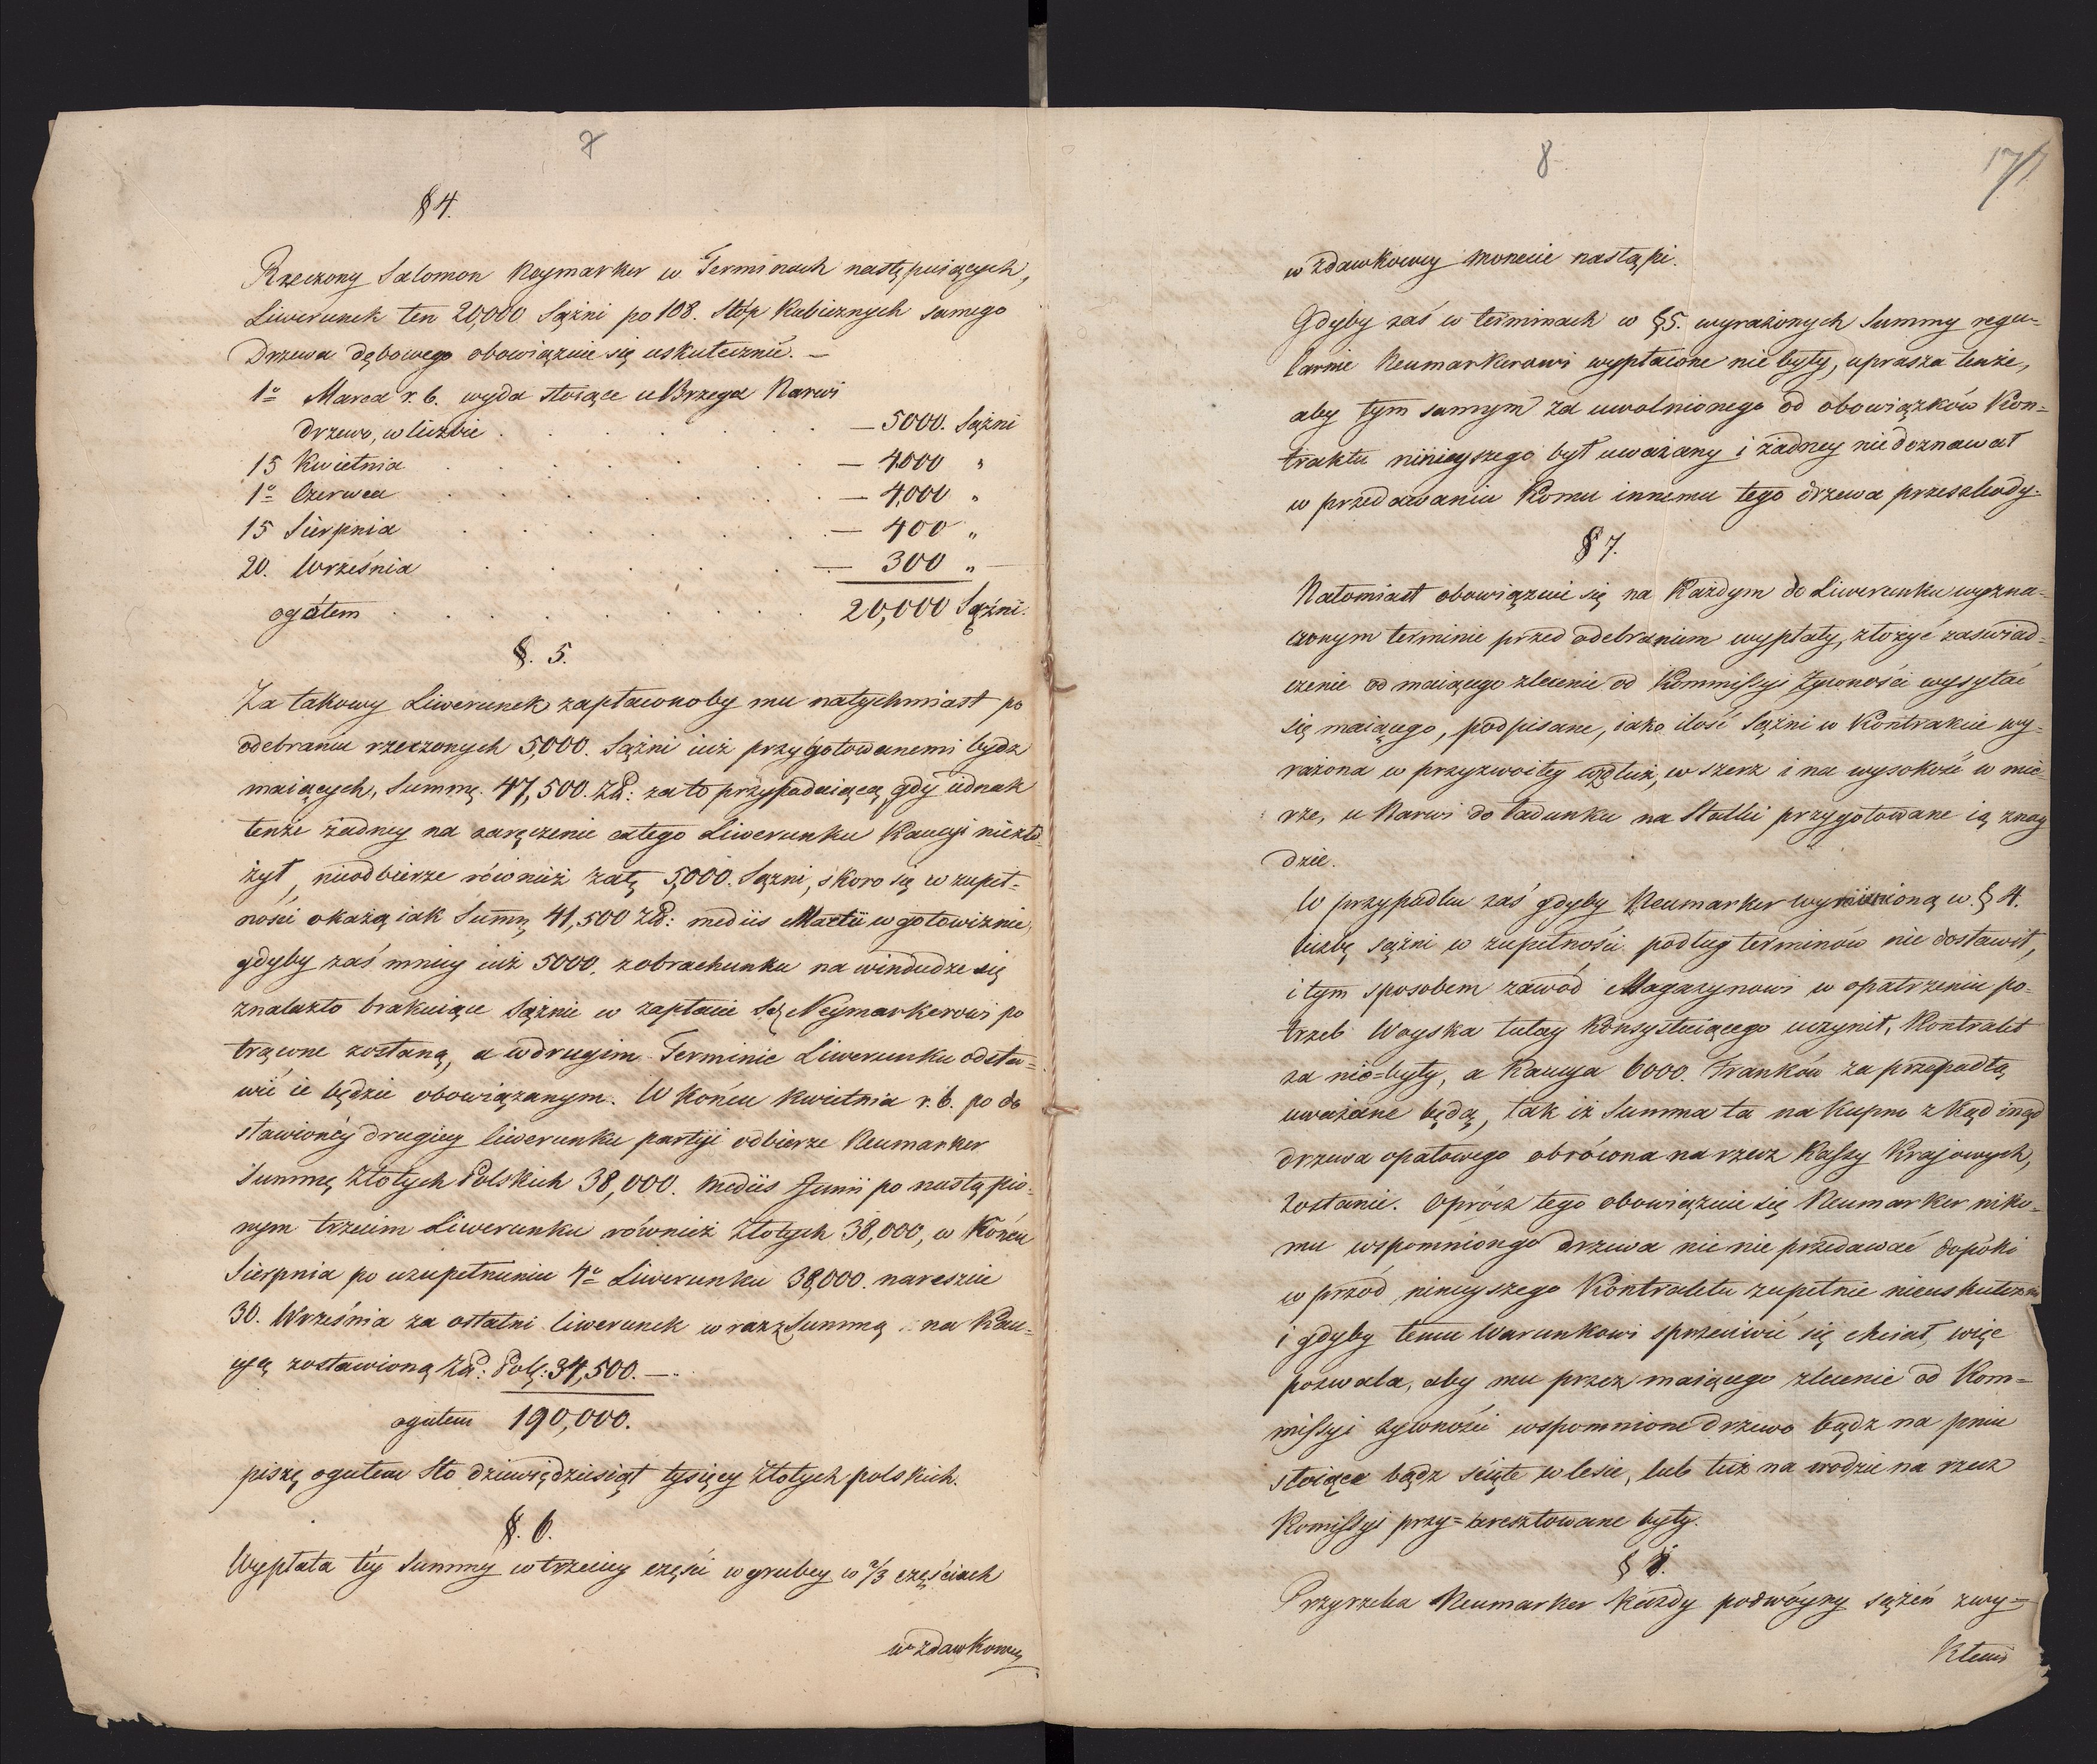 7
§ 4.
Rzeczony Salomon Neymarker w Terminach następuiących,
Liwerunek ten 20,000 Sążni po 108. Stóp Kubicznych samego
Drzewa dębowego obowiązuie się uskutecznić. —
1º Marca r. b. wyda stoiące u Brzega Narwi
drzewo, w liczbie . . . . . — 5000. Sążni
15 Kwietnia . . . . . — 4000 "
1º Czerwca . . . . . — 4,000 "
15 Sierpnia . . . . . — 400 "
20. Września . . . . . — 300 " —
ogółem . . . . . 20,000 Sążni.
§. 5.
Za takowy Liwerunek zapłaconoby mu natychmiast po
odebraniu rzeczonych 5,000. Sążni iuż przygotowanemi bydz
maiących, Summę 47,500. Zł: za to przypadaiącą, gdy iednak
tenże żadney na zaręczenie całego Liwerunku Kaucyi niezło-
żył, nieodbierze również zatę 5,000. Sążni, skoro się w zupeł-
ności okażą iak Sumę 41,500 Zł: mediis Martii w gotowiznie,
gdyby zaś mniey iuż 5000. z obrachunku na windudze się
znalazło brakuiące Sążnie w zapłacie Sę Neymarkerowi po
trącone zostaną, a w drugim Terminie Liwerunku odsta-
wić ie będzie obowiązanym. W Końcu Kwietnia r. b. po do
stawioney drugiey liwerunku partyi odbierze Neumarker
Summę Złotych Polskich 38,000. mediis Junii po nastąpio-
nym trzecim Liwerunku również Złotych 38,000, w Końcu
Sierpnia po uzupełnieniu 4º Liwerunku 38,000. nareszcie
30. Września za ostatni liwerunek w raz z Summą na Kau-
cyą zostawioną Zł: Pols: 34,500. —
ogułem 190,000.
piszę ogułem Sto dziewięćdziesiąt tysięcy Złotych polskich.
§. 6.
Wypłata téy Summy w trzeciey części w grubey w 2/3 częściach
w zdawkowey
8
17/
w zdawkowey monecie nastąpi.
Gdyby zaś w terminach w § 5. wyrażonych Summy regu-
larnie Neumarkerowi wypłacone nie były, uprasza tenże,
aby tym samym za uwolnionego od obowiązków Kon-
traktu ninieyszego był uważany i żadney niedoznawał
w przedawaniu Komu innemu tego drzewa przeszkody.
§ 7.
Natomiast obowiązuie się na Każdym do Liwerunku wyzna-
czonym terminie przed odebraniem wypłaty, złożyć zaświad-
czenie od maiącego zlecenie od Kommissyi Żywności wysyłać
się maiącego, podpisane, iako ilość Sążni w Kontrakcie wy-
rażona w przyzwoitey wzdłuż, w szerz i na wysokość w mie-
rze, u Narwi do ładunku na Statki przygotowane ią znay
dzie.
W przypadku zaś gdyby Neumarker wymienioną w § 4.
liczbę sążni w zupełności podług terminów nie dostawił,
i tym sposobem zawód Magazynowi w opatrzeniu po-
trzeb Woyska tutay Konsystuiącego uczynił, Kontrakt
za nie=były, a Kaucya 6000. Franków za przepadłą
uważane będą, tak iż Summa ta na Kupno z kąd inąd
drzewa opałowego obrócona na rzecz Kassy Krajowych,
zostanie. Oprócz tego obowiązuie się Neumarker niko-
mu wspomniongo drzewa nic nie przedawać dopóki
w przód ninieyszego Kontraktu zupełnie nieuskuteczni
i gdyby temu Warunkowi sprzeciwić się chciał, więc
pozwala, aby mu przez maiącego zlecenie od Kom-
missyi żywności wspomnione drzewo bądz na pniu
stoiące bądz ścięte w lesie, lub też na wodzie na rzecz
Komissyi przy=aresztowane były.
§ 8.
Przyrzeka Neumarker każdy podwóyny sążeń zwy-
kłemi